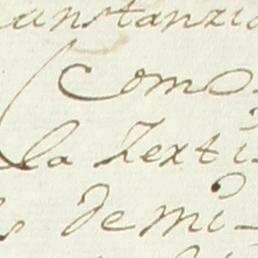 unstanzia
Como
la Zexti-
demi-